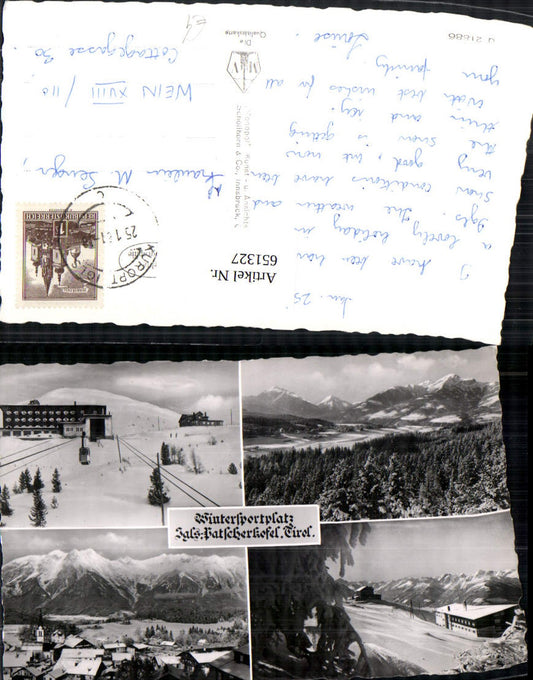 Jan. 25
I have been have
a lovely holiday in
Igls. The weather and
snow conditions have been
very good, but now
the snow is getting
thin and icy.
With best wishes for all
your family
Louise.
Fräulein M.
WEIN XVIII / 110
Cottagegasse 30.
Artikel Nr.
651327
u. Ansichts
Schöllhorn & Co., Innsbruck,
Die
Qualitätskarte
U 21686
REPUBLIK ÖSTERREICH
KURORT IGLS
25.1.61
Wintersportplatz
Igls-Patscherkofel, Tirol.